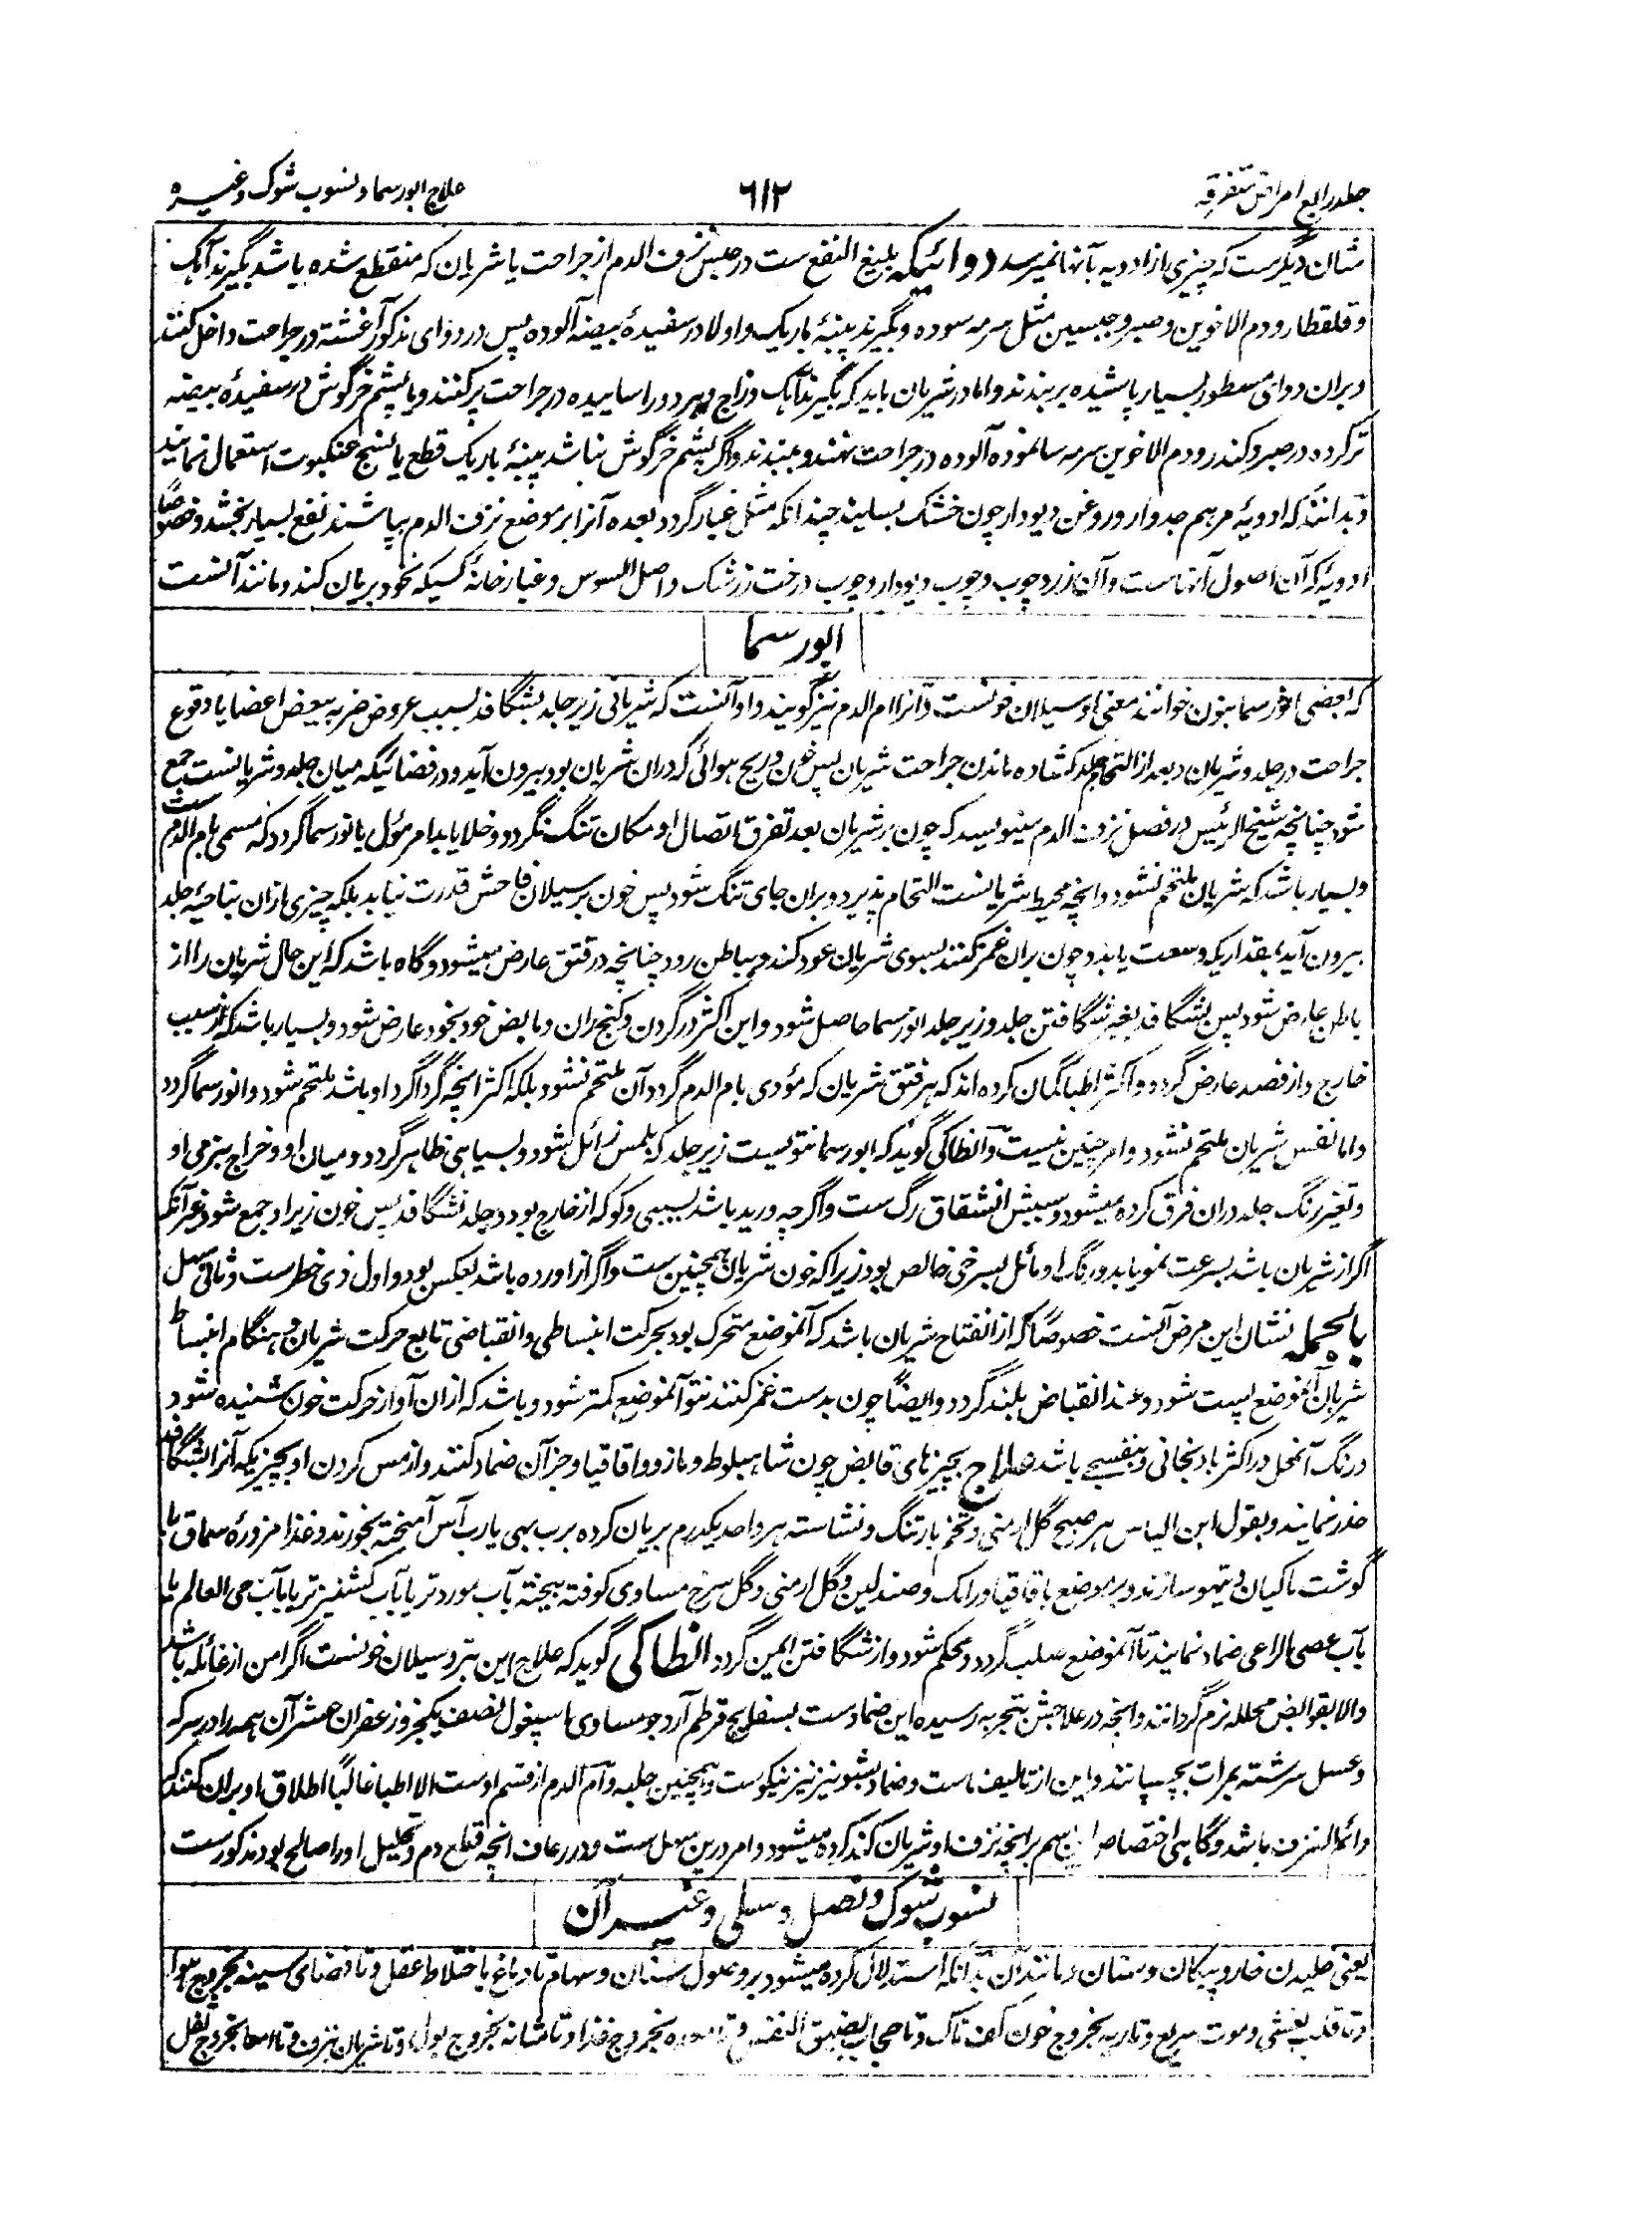 جلد رابع امراض متفرقه
۶۱۲
علاج ابورسما و نسوب شوک و غیره
شان دیگرست که چیزی از ادویه بآنها نمیرسد دوائیکه بلیغ النفع ست در حبس نزف الدم از جراحت یا شریان که منقطع شده باشد بگیرند آهک
و قلقطار و دم الاخوین و صبر و جبسین مثل سرمه سوده و بگیرند پنبهٔ باریک و اولا در سفیدهٔ بیضه آلوده پس در دوای مذکور آغشته در جراحت داخل کنند
و بران دوای مسطور بسیار پاشیده بربندند و اما در شریان باید که بگیرند آهک و زاج و هر دو را ساییده در جراحت پر کنند و یا پشم خرگوش در سفیدهٔ بیضه
تر کرده در صبر و کندر و دم الاخوین سرمه سا نموده آلوده در جراحت نهند و ببندند و اگر پشم خرگوش نباشد پنبهٔ باریک قطع یا نسج عنکبوت استعمال نمایند
و بدانند که ادویهٔ مرهم جدوار و روغن دیودار چون خشک بسایند چندانکه مثل غبار گردد بعده آنرا بر موضع نزف الدم بپاشند نفع بسیار بخشد و خصوصاً
ادویهٔ که آن اصول آنهاست و آن زردچوب و چوب دیودار و چوب درخت زرشک و اصل السوس و غبار خانهٔ کسیکه نخود بریان کند و مانند آنست
ابورسما
که بعضی انورسما بنون خوانند معنی او سیلان خونست و آنرا ام الدم نیز گویند و او آنست که شریانی زیر جلد بشگافد بسبب عروض ضربه ببعض اعضا یا وقوع
جراحت در جلد و شریان و بعد از التحام جلد کشاده ماندن جراحت شریان پس خون و ریح هوائی که دران شریان بود بیرون آید و در فضائیکه میان جلد و شریانست جمع
شود چنانچه شیخ الرئیس در فصل نزف الدم مینویسد که چون بر شریان بعد تفرق اتصال او مکان تنگ نگردد و خلا یابد امر مؤل بانورسما گردد که مسمی بام الدم ست
و بسیار باشد که شریان ملتحم نشود و انچه محیط شریانست التحام پذیرد و بران جای تنگ شود پس خون بر سیلان فاحش قدرت نیابد بلکه چیزی ازان بناحیهٔ جلد
بیرون آید بمقداریکه وسعت یابد و چون بران غمز کنند بسوی شریان عود کند و بباطن رود چنانچه در فتق عارض میشود و گاه باشد که این حال شریان را از
باطن عارض شود پس بشگافد بغیر شگافتن جلد و زیر جلد انورسما حاصل شود و این اکثر در گردن و کنج ران و مابض خودبخود عارض شود و بسیار باشد که از سبب
خارج و از فصد عارض گردد و اکثر اطبا گمان کرده اند که هر فتق شریان که مؤدی بام الدم گردد آن ملتحم نشود بلکه اکثر انچه گرداگرد او باشد ملتحم شود و انورسما گردد
و اما نفس شریان ملتحم نشود و امر چنین نیست و انطاکی گوید که ابورسما نتویست زیر جلد که بلمس زائل شود و بسیاهی ظاهر گردد و میان او و خراج بنرمی او
و تغیر رنگ جلد دران فرق کرده میشود و سببش انشقاق رگ ست و اگرچه ورید باشد بسببی ولو که از خارج بود و جلد نشگافد پس خون زیر او جمع شود غیر آنکه
اگر از شریان باشد بسرعت نمو یابد و رنگ او مائل بسرخی خالص بود زیرا که خون شریان همچنین ست و اگر از اورده باشد بعکس بود و اول ذی خطرست و ثانی سهل
بالجمله نشان این مرض آنست خصوصاً که از انفتاح شریان باشد که آنموضع متحرک بود بحرکت انبساطی و انقباضی تابع حرکت شریان و هنگام انبساط
شریان آنموضع پست شود و عند انقباض بلند گردد و ایضاً چون بدست غمز کنند نتو آنموضع کمتر شود و باشد که ازان آواز حرکت خون شنیده شود
و رنگ آنمحل در اکثر بادنجانی و بنفسجی باشد علاج بچیزهای قابض چون شاه بلوط و مازو و اقاقیا و جز آن ضماد کنند و از مس کردن او بچیزیکه آنرا بشگافد
حذر نمایند و بقول ابن الیاس هر صبح گل ارمنی و تخم بارتنگ و نشاسته هر واحد یکدرم بریان کرده برب بهی یا رب آس آمیخته بخورند و غذا مزورهٔ سماق با
گوشت ماکیان و تیهو سازند و بر موضع باقاقیا و رامک و صندلین و گل ارمنی و گل سرخ مساوی کوفته بیخته بآب مورد تر یا بآب کشنیز تر یا بآب حی العالم یا
بآب عصی الراعی ضماد نمایند تا آنموضع صلب گردد و محکم شود و از شگافتن ایمن گردد انطاکی گوید که علاج این بتر و سیلان خونست اگر امن از غائله باشد
والا بقوابض محلله نرم گردانند و انچه در علاجش بتجربه رسیده این ضمادست بسفایج قرطم آرد جو مساوی اسپغول نصف یکجزو زعفران عشر آن همه را در سرکه
و عسل سرشته بمرات بچسپانند و این از تالیف ماست و ضماد بشونیز نیز نیکوست و همچنین حلبه و ام الدم از قسم اوست الا اطبا غالباً اطلاق او بران کنند که
دائم النزف باشد و گاهی اختصاص این اسم برانچه نزف او شریان کند کرده میشود و امر درین سهل ست و در رعاف انچه قطع دم و تحلیل او را صالح بود مذکورست
نسوب شوک و نصل و سلی و غیر آن
یعنی خلیدن خار و پیکان و سنان و مانند آن بدانکه استدلال کرده میشود بر وصول سنان و سهام تا دماغ باختلاط عقل و تا فضای سینه بخروج هوا
و تا قلب بغشی و موت سریع و تا ریه بخروج خون کفناک و تا حجاب بضیق النفس و تا معده بخروج غذا و تا مثانه بخروج بول و تا شریان بنزف و تا امعا بخروج ثفل